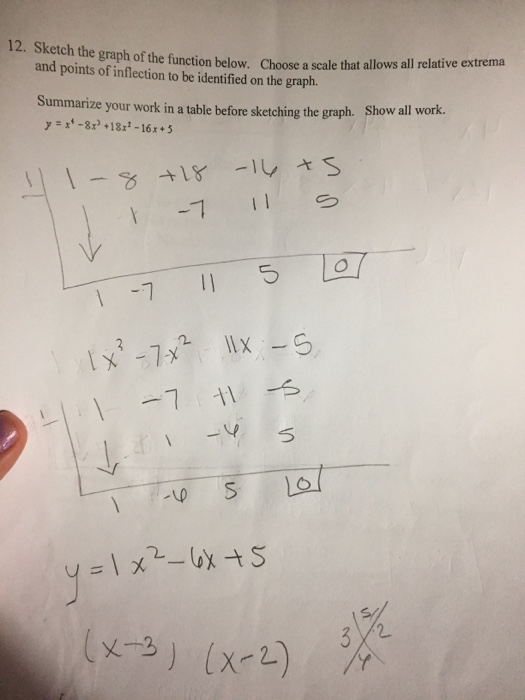 12. Sketch the graph of the function below. Choose a scale that allows all relative extrema
and points of inflection to be identified on the graph.
Summarize your work in a table before sketching the graph. Show all work.
y = x⁴ - 8x³ + 18x² - 16x + 5
1| 1 - 8 +18 -16 +5
↓ 1 -7 11 5
1 -7 11 5 0
1x³ - 7x² 11x - 5
1| 1 -7 +11 -5
↓ 1 -6 5
1 -6 5 0
y = 1x² - 6x + 5
(x-3) (x-2)
5
3 2
6